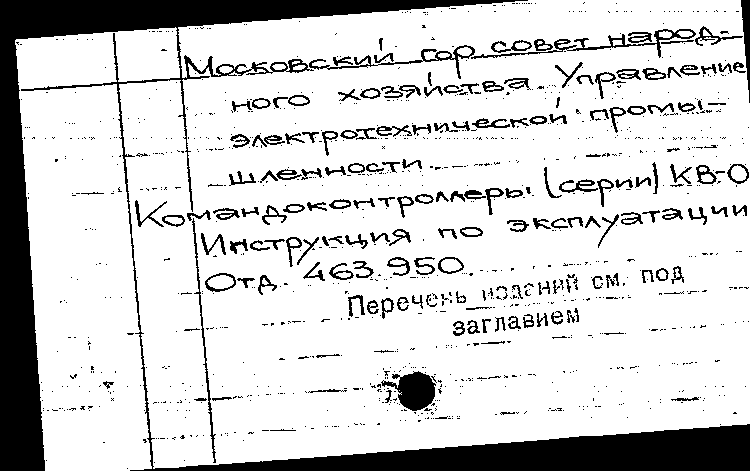 Московский гор. совет народ-
ного хозяйства. Управление
электротехнической промы-
шленности.
Командоконтроллеры (серии) КВ-0
Инструкция по эксплуатации
Отд. 463.950.
Перечень изданий см. под
заглавием